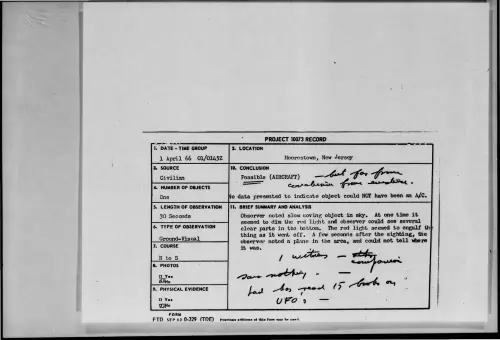 PROJECT 10073 RECORD
1. DATE - TIME GROUP
1 April 66 01/0145Z
2. LOCATION
Moorestown, New Jersey
3. SOURCE
Civilian
10. CONCLUSION
Possible (AIRCRAFT) — but far from
conclusive from
No data presented to indicate object could NOT have been an A/C.
4. NUMBER OF OBJECTS
One
5. LENGTH OF OBSERVATION
30 Seconds
11. BRIEF SUMMARY AND ANALYSIS
Observer noted slow moving object in sky. At one time it
seemed to dim the red light and observer could see several
clear parts in the bottom. The red light seemed to engulf the
thing as it went off. A few seconds after the sighting, the
observer noted a plane in the area, and could not tell where
it was.
1 witness — companion
saw nothing. —
had has read 15 books on
UFO's —
6. TYPE OF OBSERVATION
Ground-Visual
7. COURSE
N to S
8. PHOTOS
□ Yes
No
9. PHYSICAL EVIDENCE
□ Yes
No
FORM
FTD SEP 63 0-329 (TDE) Previous editions of this form may be used.